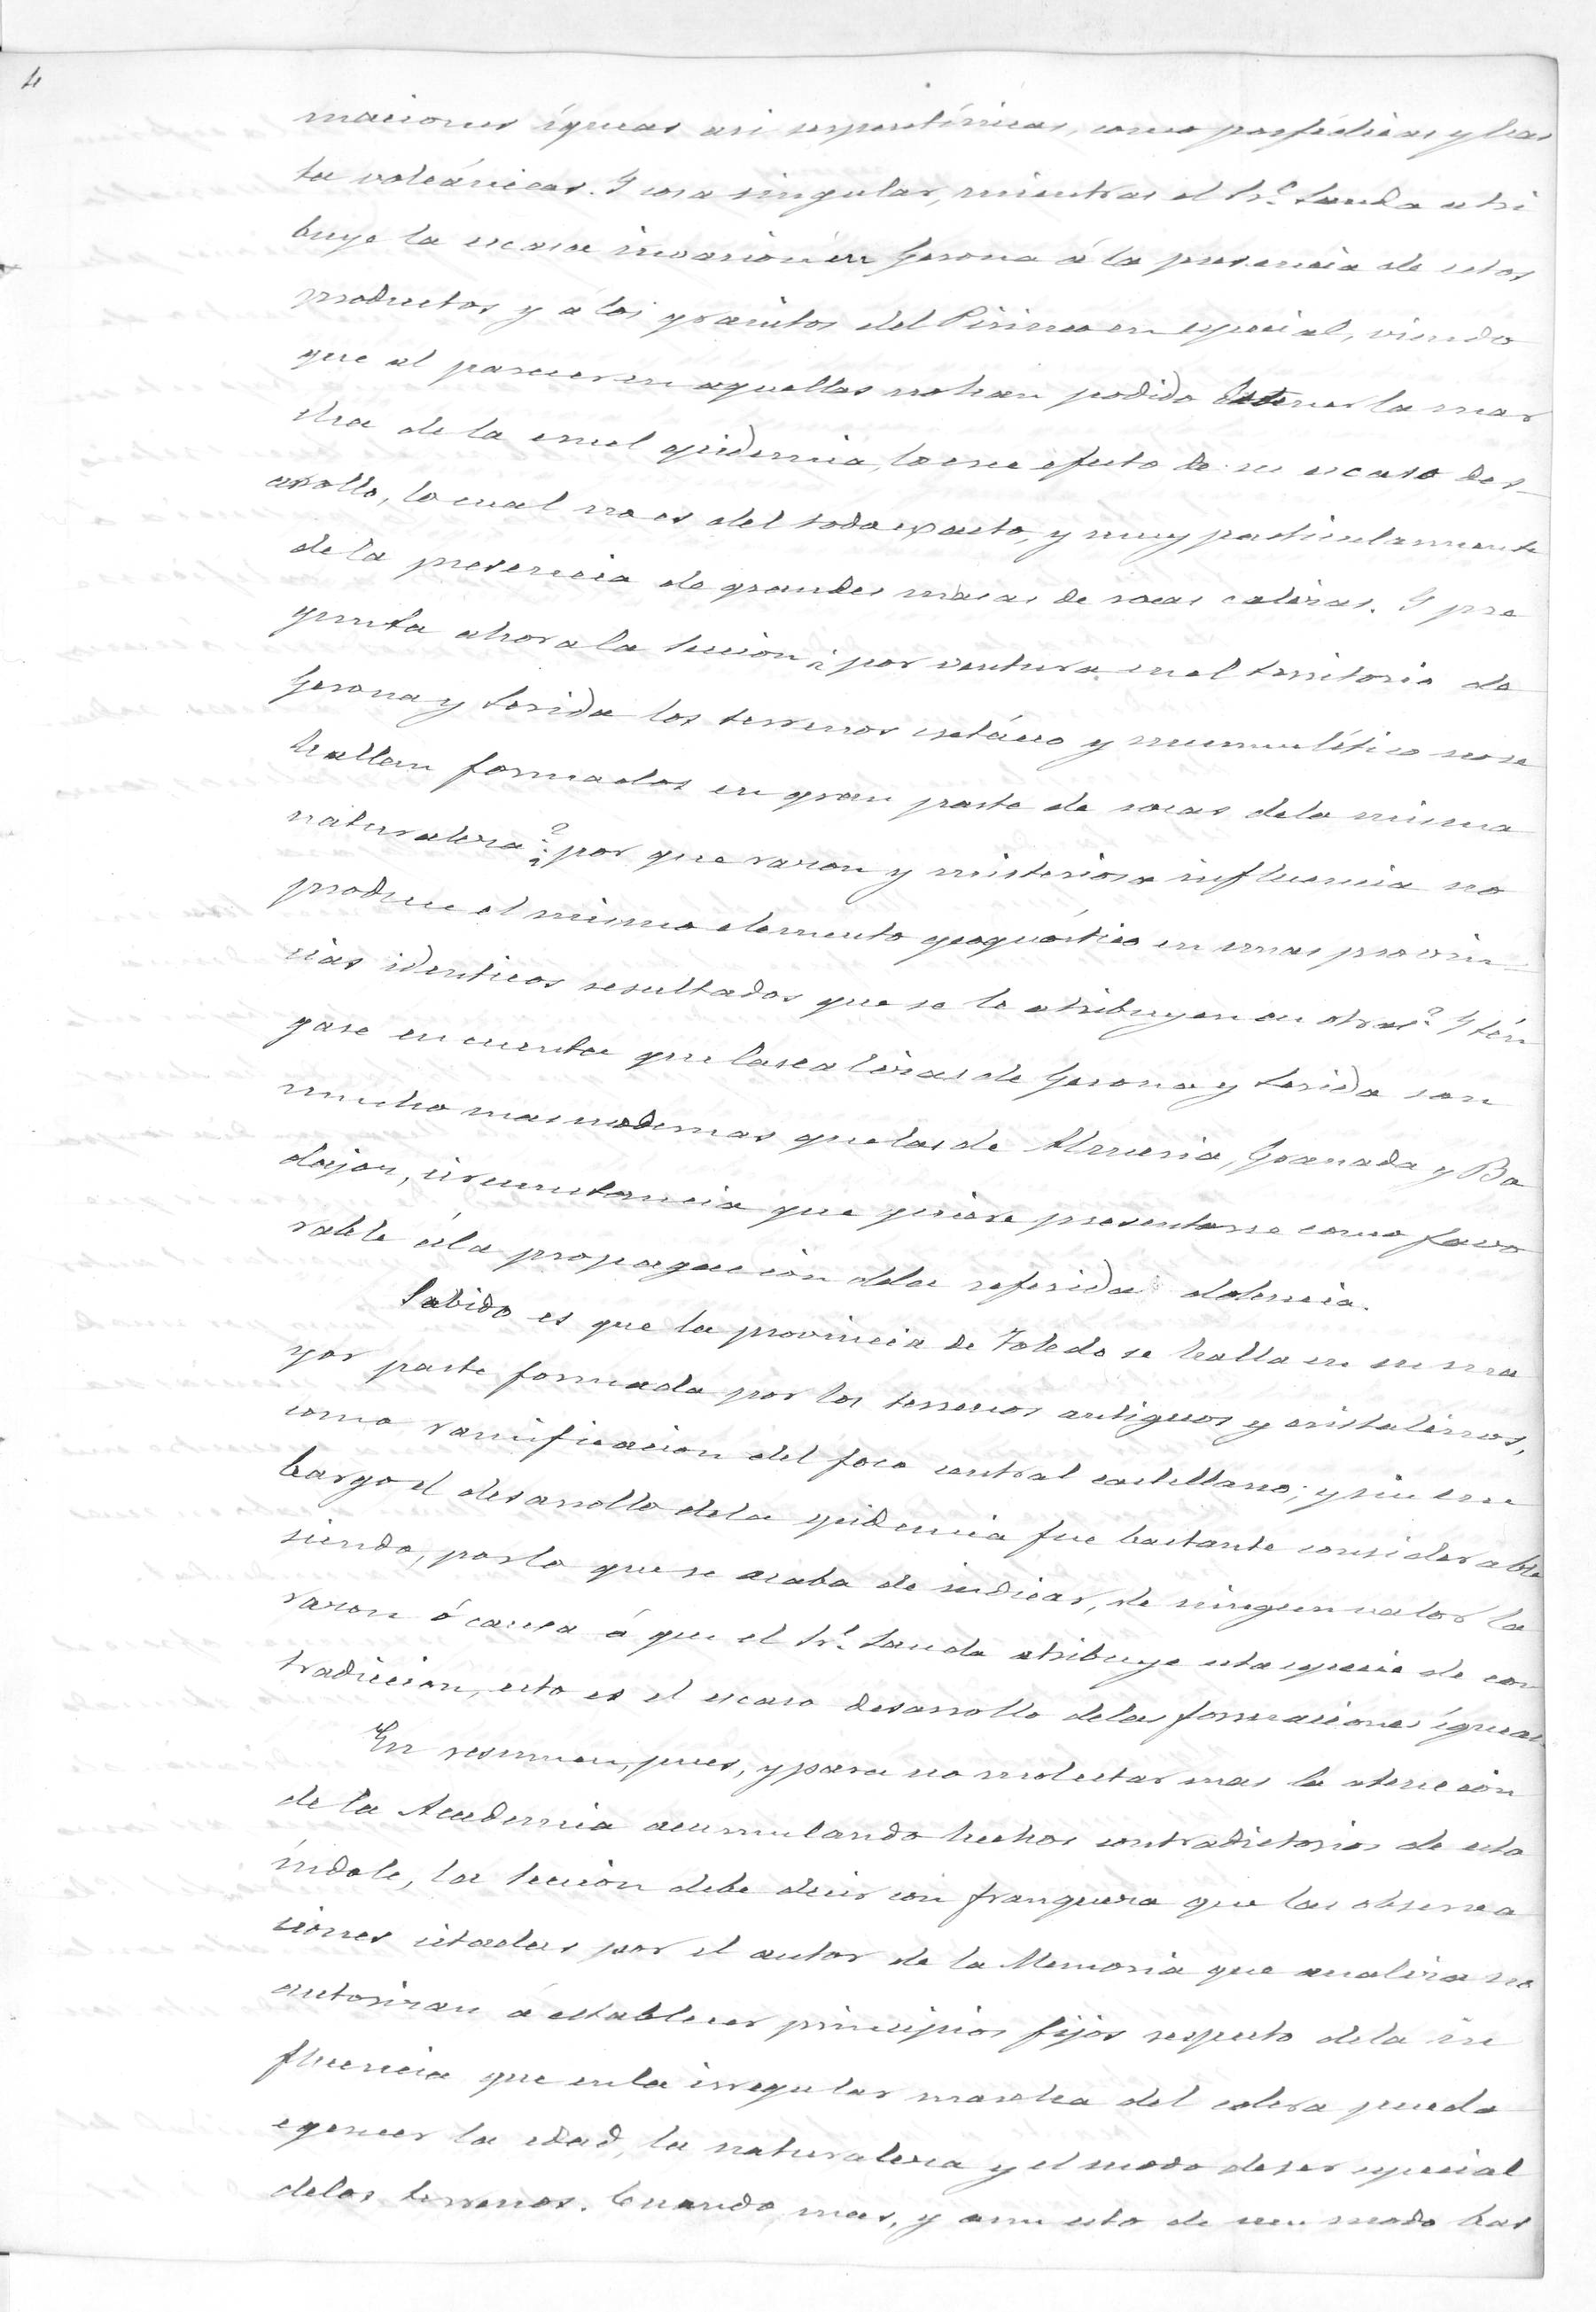 4
maciones ígneas asi serpentínicas, como porfídicas y has
ta volcánicas. Y cosa singular, mientras el Sr. Landa atri
buye la escasa invasión en Gerona á la presencia de estos
productos y á los granitos del Pirineo en especial, viendo
que al parecer en aquellas no han podido detener la mar
cha de la cruel epidemia, lo cree efecto de su escaso des-
arrollo, lo cual no es del todo exacto, y muy particularmente
de la presencia de grandes masas de rocas calizas. Y pre
gunta ahora la Seccion ¿por ventura en el territorio de
Gerona y Lerida los terrenos cretáceo y nummulítico no se
hallan formados en gran parte de rocas de la misma
naturaleza? ¿por que razon y misteriosa influencia no
produce el mismo elemento geognóstico en unas provin-
cias identicos resultados que se le atribuyen en otras? Y tén
gase en cuenta que las calizas de Gerona y Lerida son
mucho mas modernas que las de Almeria, Granada y Ba
dajoz, circunstancia que quiere presentarse como favo
rable á la propagacion de la referida dolencia.
Sabido es que la provincia de Toledo se halla en su ma
yor parte formada por los terrenos antiguos y cristalinos,
como ramificacion del foco central castellano; y sin em
bargo el desarrollo de la epidemia fue bastante considerable
siendo, por lo que se acaba de indicar, de ningun valor la
razon ó causa á que el Sr. Landa atribuye esta especie de con
tradiccion, esto es el escaso desarrollo de las formaciones ígneas
En resumen, pues, y para no molestar mas la atencion
de la Academia acumulando hechos contradictorios de esta
índole, la Seccion debe decir con franqueza que las observa
ciones citadas por el autor de la Memoria que analiza no
autorizan á establecer principios fijos respecto de la in
fluencia que en la irregular marcha del colera pueda
egercer la edad, la naturaleza y el modo de ser especial
de los terrenos. Cuando mas, y aun esto de un modo bas